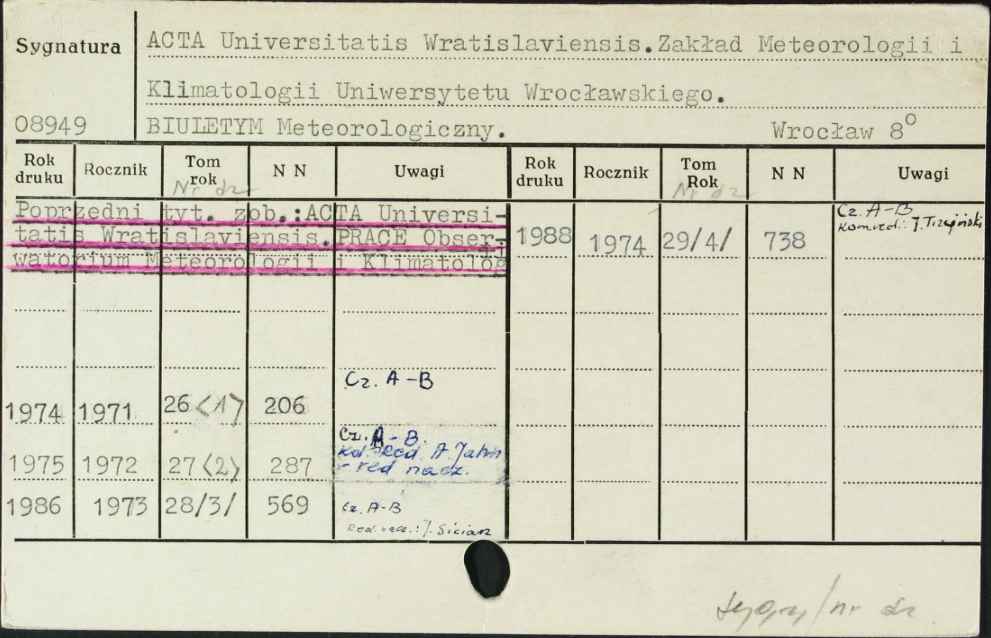 Sygnatura
ACTA Universitatis Wratislaviensis.Zakład Meteorologii i
Klimatologii Uniwersytetu Wrocławskiego.
08949
BIULETYM Meteorologiczny.
Wrocław 8°
Rok druku Rocznik Tom rok N N Uwagi Rok druku Rocznik Tom Rok N N Uwagi
Nr dz Nr dz
Poprzedni tyt. zob.:ACTA Universi-
tatis Wratislaviensis.PRACE Obser-
watorium Meteorologii i Klimatolog
1974 1971 26 <1> 206 Cz. A-B
1975 1972 27 <2> 287 Cz. A-B.
Kol. Red. A. Jahn
- red nacz.
1986 1973 28/3/ 569 Cz. A-B
Red. nacz.: J.
1988 1974 29/4/ 738 Cz. A-B
Kom red.: J. Trzciński
/nr dz